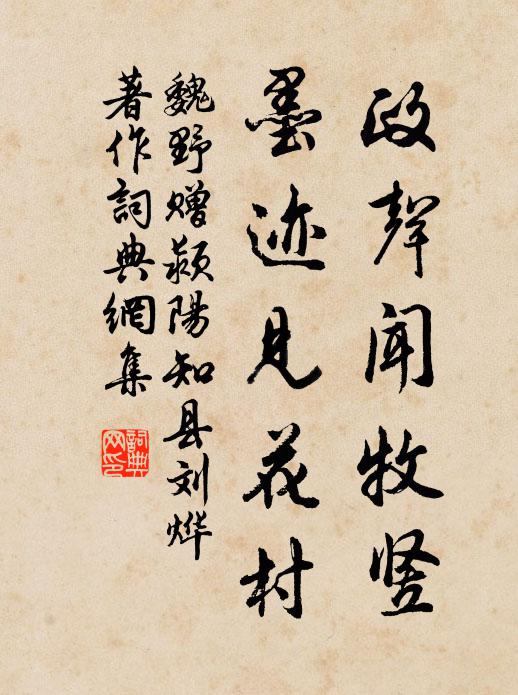 政聲闻牧竖
墨迹见花村
魏野赠颍陽知县刘烨
著作詞典網集
詞典网印